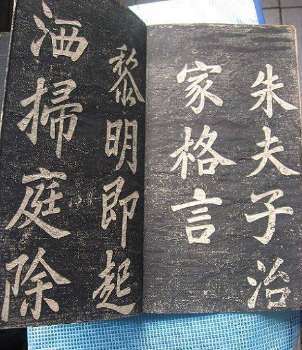 朱夫子治
家格言
黎明即起
洒掃庭除